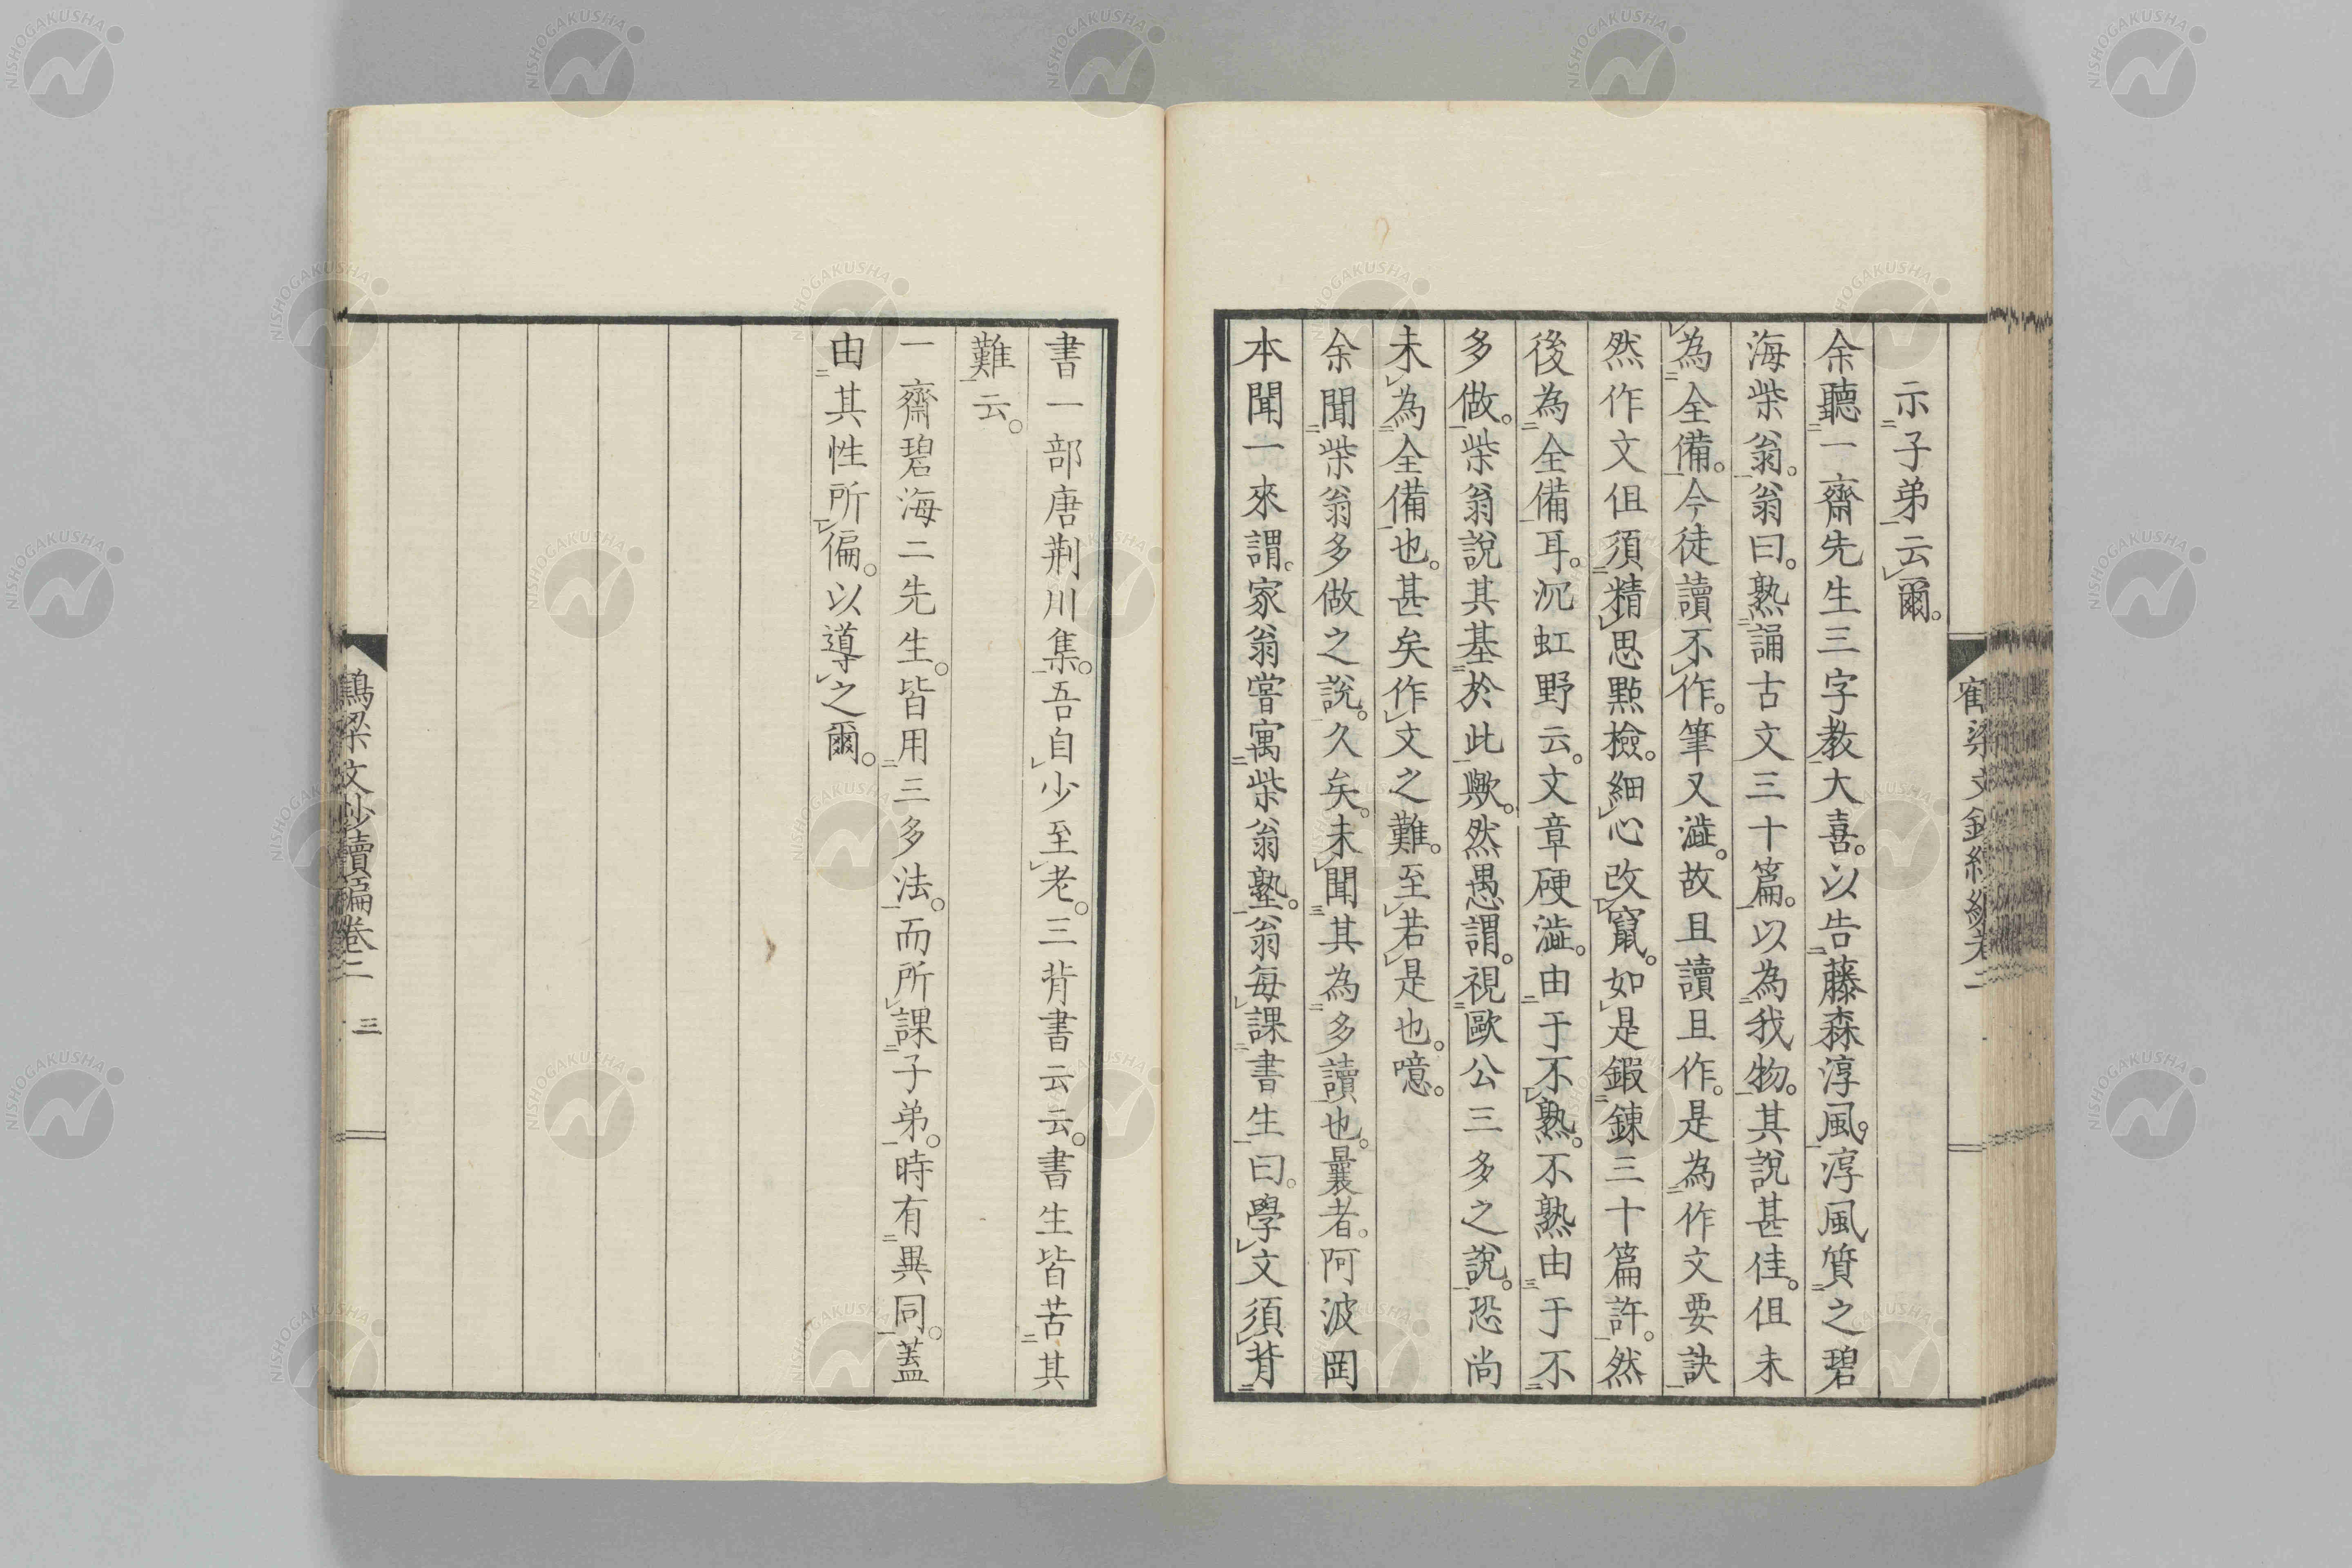 示子弟云爾。
余聽一齋先生三字教大喜。以告藤森淳風。淳風質之碧
海柴翁。翁曰。熟誦古文三十篇。以為我物。其說甚佳。但未
為全備。今徒讀不作。筆又澁。故且讀且作。是為作文要訣
然作文但須精思點檢。細心改竄。如是鍜錬三十篇許。然
後為全備耳。沉虹野云。文章硬澁。由于不熟。不熟由于不
多做。柴翁說其基於此歟。然愚謂。視歐公三多之說。恐尚
未為全備也。甚矣作文之難。至若是也。噫。
余聞柴翁多做之說。久矣。未聞其為多讀也。曩者。阿波岡
本聞一來謂。家翁嘗寓柴翁塾。翁每課書生曰。學文須背
書一部唐荆川集。吾自少至老。三背書云云。書生皆苦其
難云。
一齋碧海二先生。皆用三多法。而所課子弟。時有異同。蓋
由其性所偏。以導之爾。
鶴梁文鈔續編卷二 三
NISHOGAKUSHA